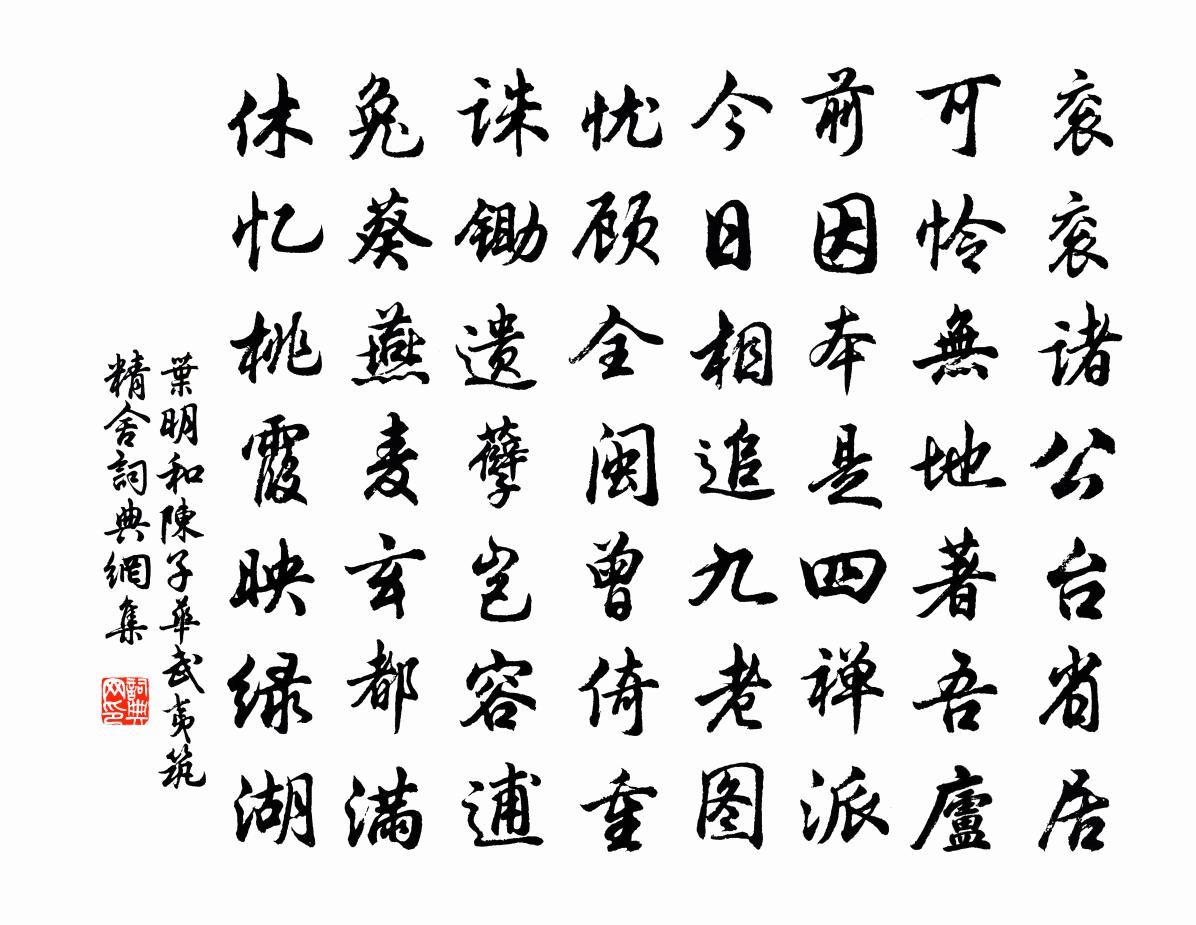 衮衮诸公台省居
可怜無地著吾廬
前因本是四禅派
今日相追九老图
忧顾全闽曾倚重
诛锄遗孽岂容逋
兔葵燕麦玄都满
休忆桃霞映绿湖
葉明和陳子華武夷筑
精舍詞典網集
詞典网印